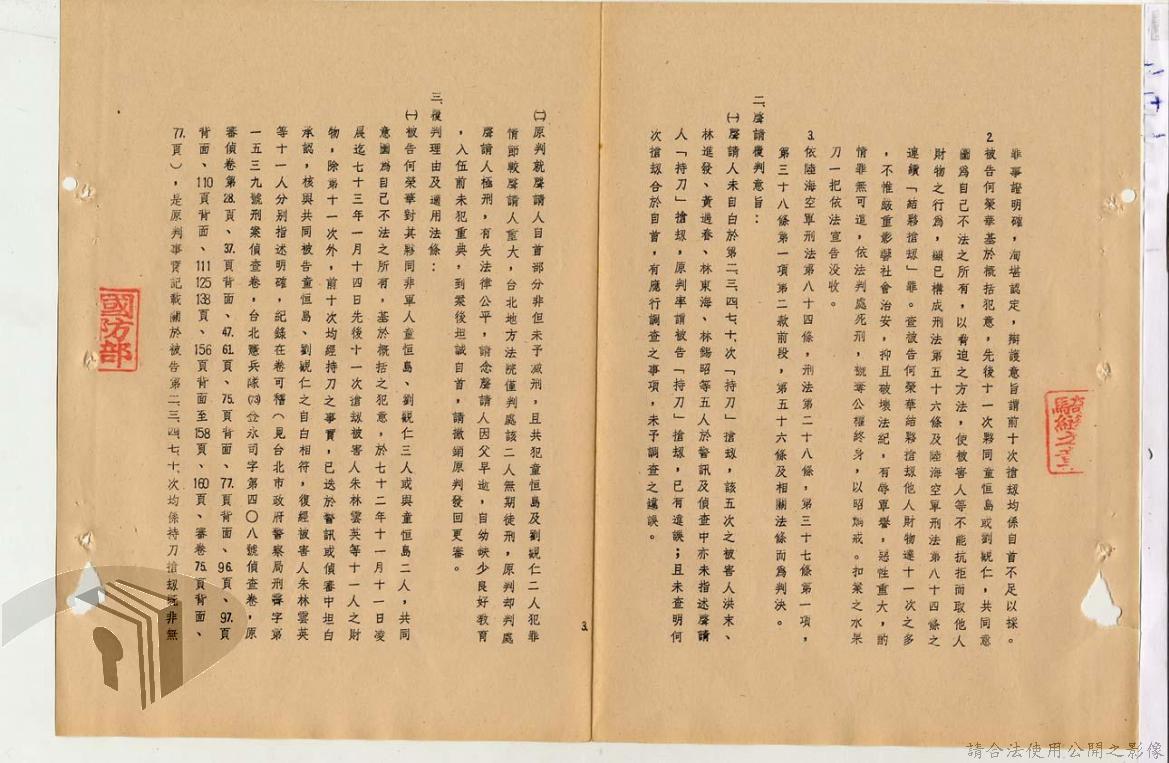 罪事證明確，洵堪認定，辯護意旨謂前十次搶刼均係自首不足以採。
2.被告何榮華基於概括犯意，先後十一次夥同童恒島或劉觀仁，共同意
圖為自己不法之所有，以脅迫之方法，使被害人等不能抗拒而取他人
財物之行為，顯已構成刑法第五十六條及陸海空軍刑法第八十四條之
連續「結夥搶刼」罪。查被告何榮華結夥搶刼他人財物達十一次之多
，不惟嚴重影響社會治安，抑且破壞法紀，有辱軍譽，惡性重大，酌
情罪無可逭，依法判處死刑，褫奪公權終身，以昭烱戒。扣案之水果
刀一把依法宣告没收。
3.依陸海空軍刑法第八十四條，刑法第二十八條，第三十七條第一項，
第三十八條第一項第二款前段，第五十六條及相關法條而為判決。
二、聲請覆判意旨：
㈠聲請人未自白於第二、三、四、七、十、次「持刀」搶刼，該五次之被害人洪末、
林進發、黃過春、林東海、林錫昭等五人於警訊及偵查中亦未指述聲請
人「持刀」搶刼，原判率謂被告「持刀」搶刼，已有違誤；且未查明何
次搶刼合於自首，有應行調查之事項，未予調查之違誤。
3.
㈡原判就聲請人自首部分非但未予減刑，且共犯童恒島及劉觀仁二人犯罪
情節較聲請人重大，台北地方法院僅判處該二人無期徒刑，原判却判處
聲請人極刑，有失法律公平，請念聲請人因父早逝，自幼缺少良好教育
，入伍前未犯重典，到案後坦誠自首，請撤銷原判發回更審。
三、覆判理由及適用法條：
㈠被告何榮華對其夥同非軍人童恒島、劉觀仁三人或與童恒島二人，共同
意圖為自己不法之所有，基於概括之犯意，於七十二年十一月十一日凌
晨迄七十三年一月十四日先後十一次搶刼被害人朱林雲英等十一人之財
物，除第十一次外，前十次均經持刀之事實，已迭於警訊或偵審中坦白
承認，核與共同被告童恒島、劉觀仁之自白相符，復經被害人朱林雲英
等十一人分別指述明確，紀錄在卷可稽（見台北市政府警察局刑警字第
一五三九號刑案偵查卷，台北憲兵隊(73)金永司字第四〇八號偵查卷，原
審偵卷第28.頁、37.頁背面、47.61.頁、75.頁背面、77.頁背面、96.頁、97.頁
背面、110頁背面、111 125 138頁、156頁背面至158頁、160頁、審卷75.頁背面、
77.頁），是原判事實記載關於被告第二、三、四、七、十、次均係持刀搶刼既非無
國防部
請合法使用公開之影像